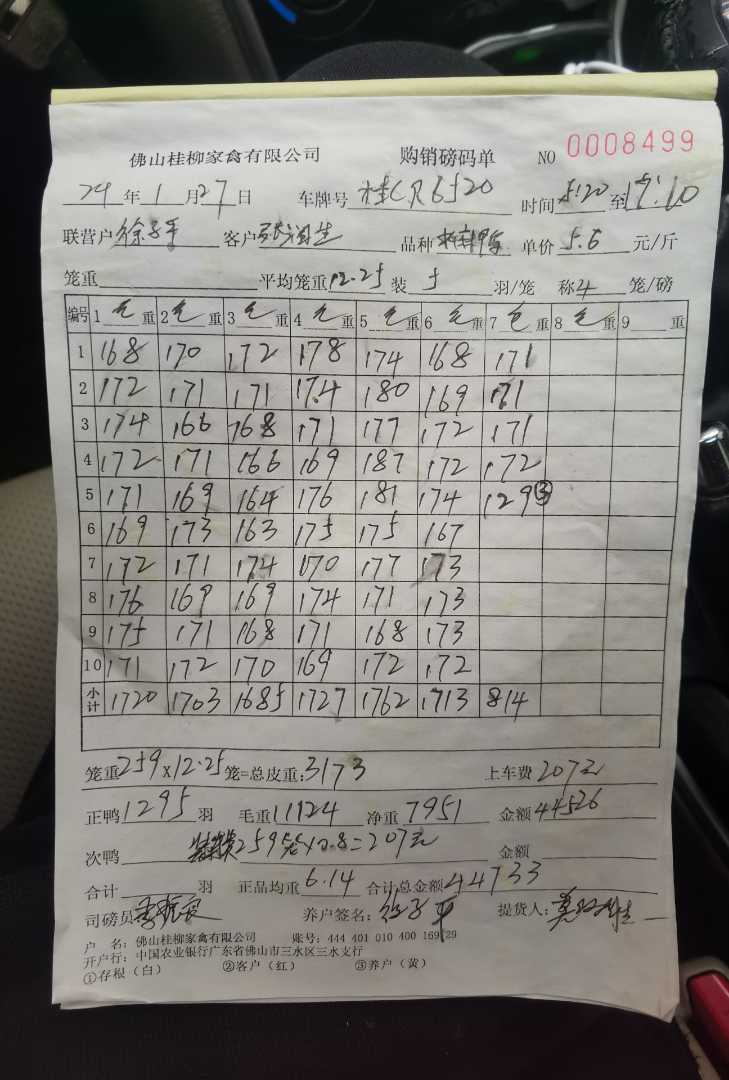 佛山桂柳家禽有限公司 购销磅码单 NO 0008499
24年1月27日 车牌号 桂CR6520 时间5:20至
联营户 徐子平 客户 品种 单价5.6元/斤
笼重 平均笼重12.25 装5羽/笼 称4笼/磅
编号 1毛重 2毛重 3毛重 4毛重 5毛重 6毛重 7毛重 8毛重 9重
1 168 170 172 178 174 168 171
2 172 171 171 174 180 169 171
3 174 166 168 171 177 172 171
4 172 171 166 169 187 172 172
5 171 169 164 176 181 174 129③
6 169 173 163 175 175 167
7 172 171 174 170 177 173
8 176 169 169 174 171 173
9 175 171 168 171 168 173
10 171 172 170 169 172 172
小计 1720 1703 1685 1727 1762 1713 814
笼重259×12.25笼=总皮重:3173 上车费207元
正鸭1295羽 毛重11124 净重7951 金额44526
次鸭 259笼×0.8=207元 金额
合计 羽 正品均重6.14 合计总金额44733
司磅员 养户签名:徐子平 提货人:
户 名:佛山桂柳家禽有限公司 账号:444 401 010 400 169 29
开户行:中国农业银行广东省佛山市三水区三水支行
①存根(白) ②客户(红) ③养户(黄)